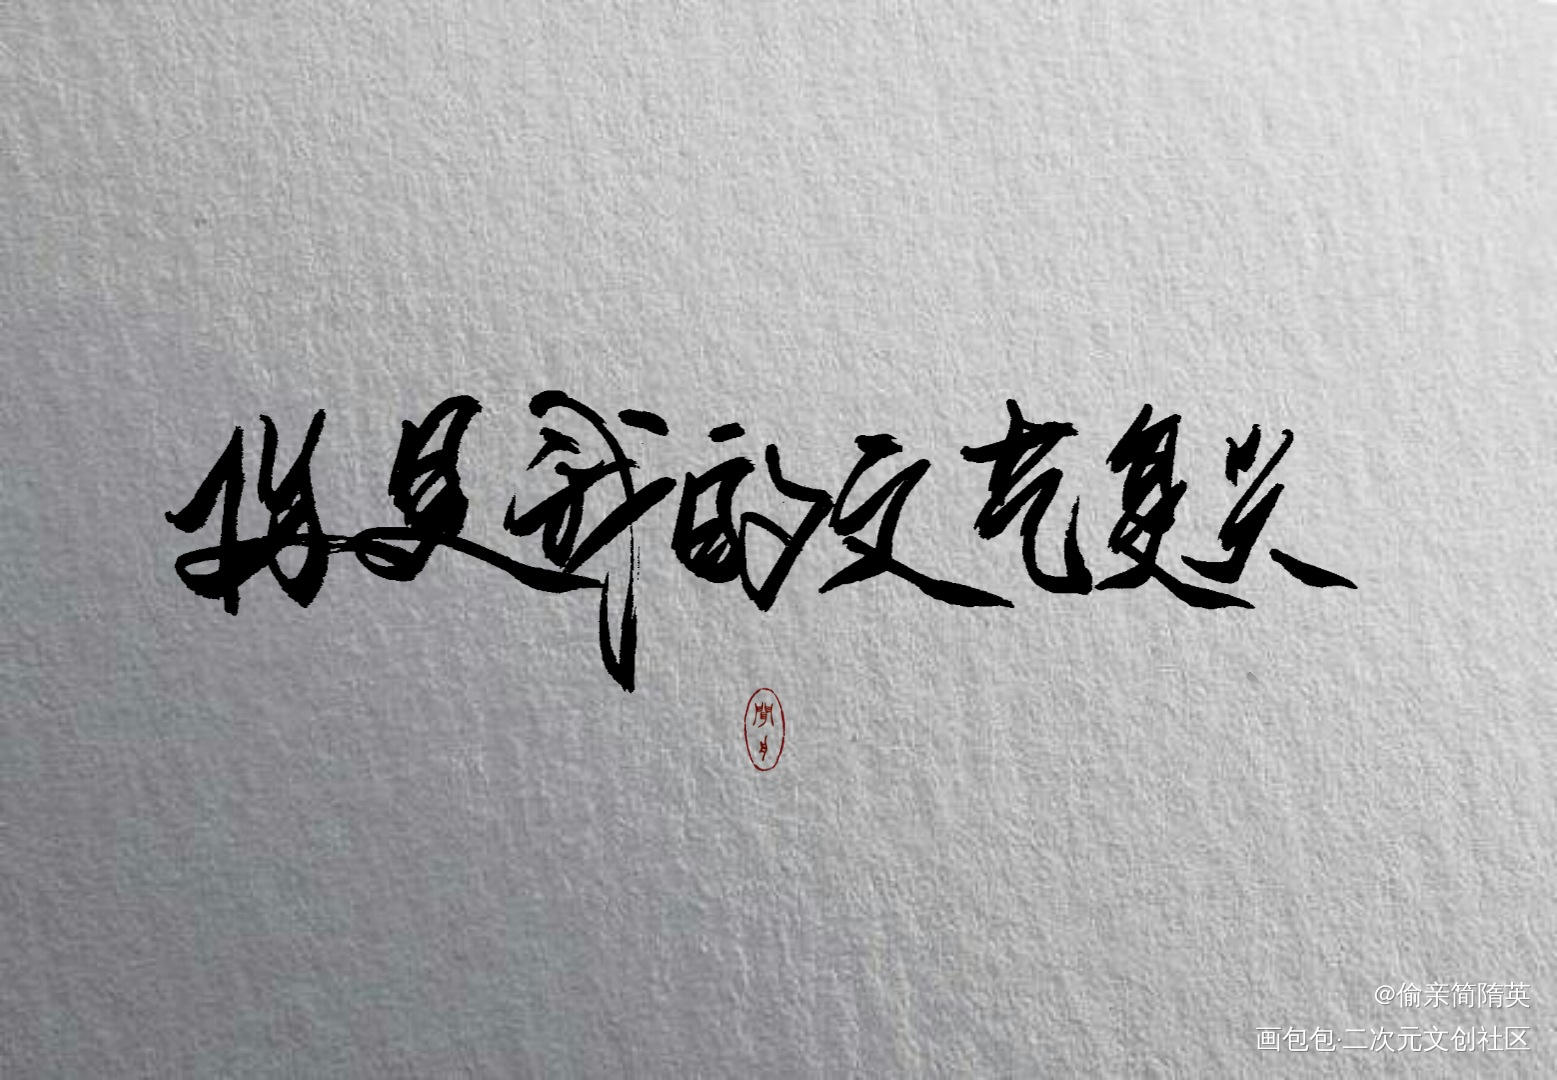 你是我的文艺复兴
間月
@偷亲简隋英
画包包·二次元文创社区